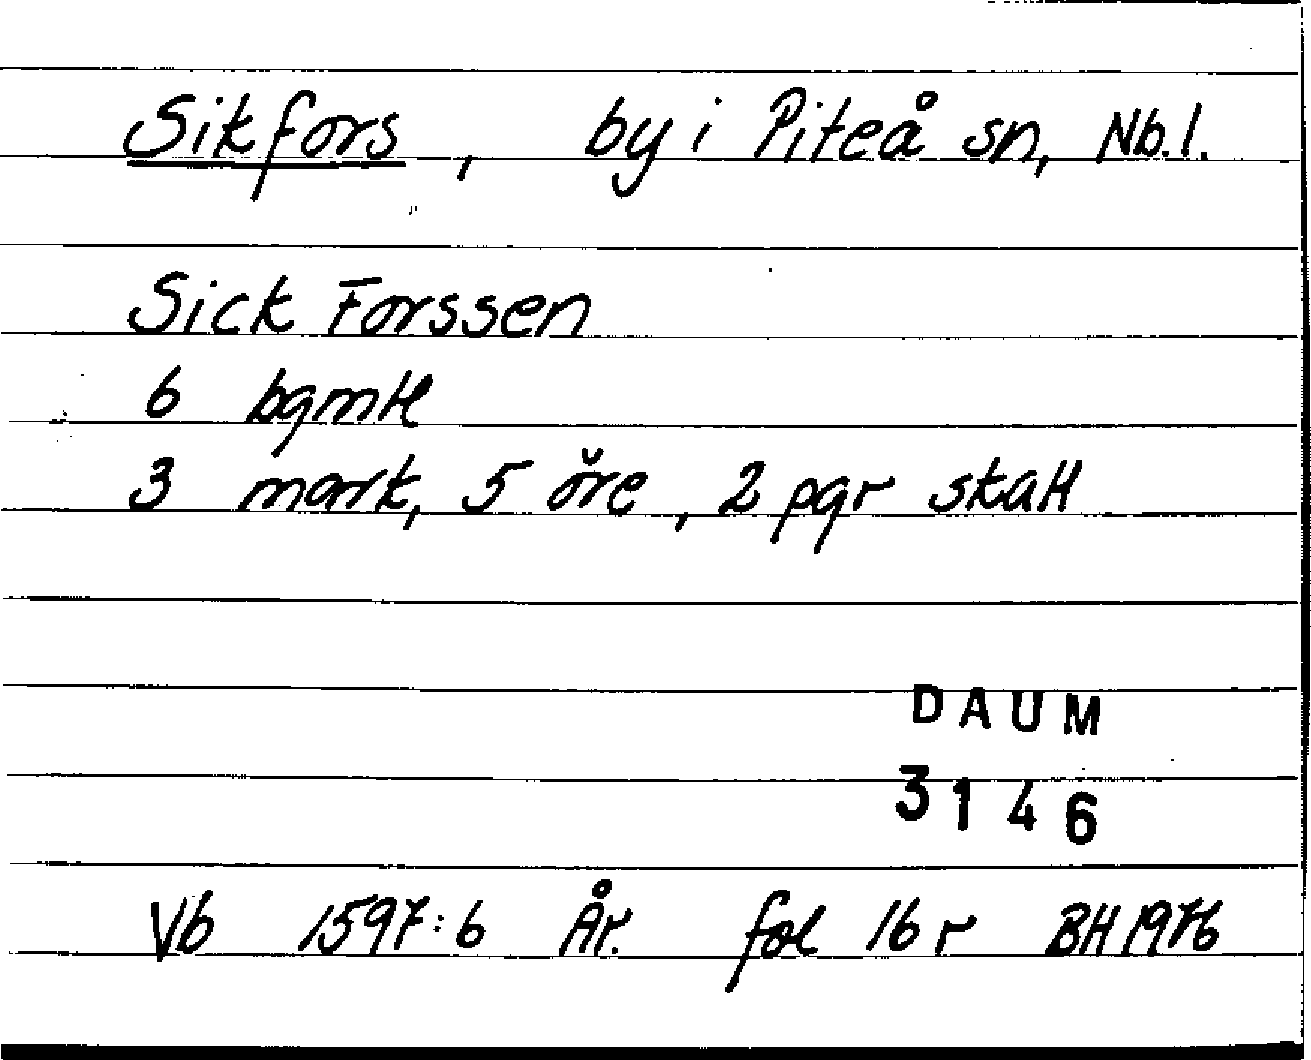 Sikfors, by i Piteå sn, Nb.l.
Sick Forssen
6 bgmtl
3 mark, 5 öre, 2 pgr skatt
DAUM
3146
Vb 1597:6 År. fol 16 r BH 1976